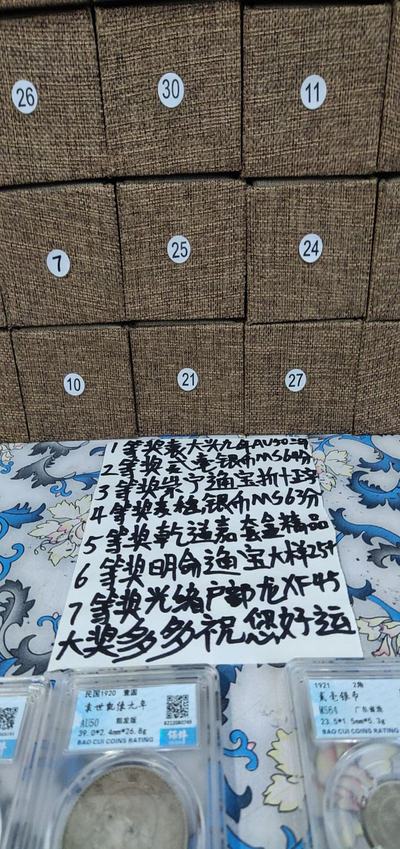 26
30
11
7
25
24
10
21
27
1等奖袁大头九年AU50分
2等奖贰毫银币MS64分
3等奖崇宁通宝折十
4等奖贰毫银币MS63分
5等奖乾道嘉套盒精品
6等奖明命通宝大样25#
7等奖光绪户部龙XF45
大奖多多祝您好运
民国1920 壹圆
袁世凯像九年
AU50 精发版
39.0*2.4mm*26.8g
BAO CUI COINS RATING
1921 2角
贰毫银币
MS64 广东省造
23.5*1.5mm*5.3g
BAO CUI COINS RATING